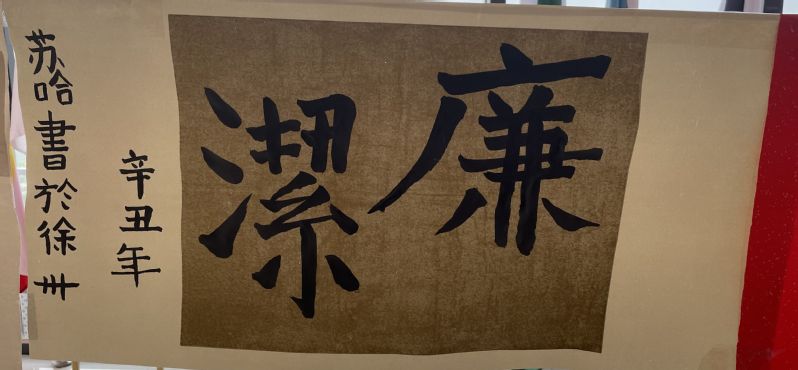 廉潔
辛丑年
苏哈書於徐州